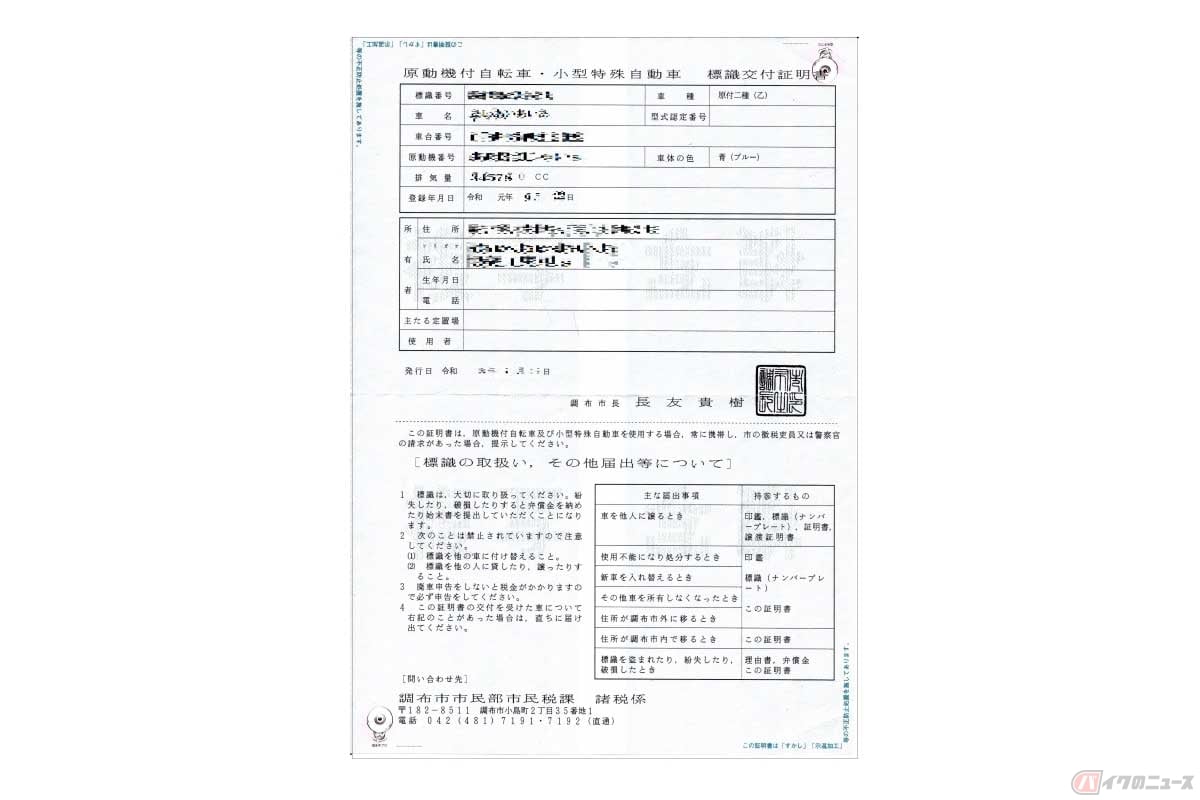 原動機付自転車・小型特殊自動車　標識交付証明書
標識番号　車　種　原付二種（乙）
車　名　型式認定番号
車台番号
原動機番号　車体の色　青（ブルー）
排気量　CC
登録年月日　令和　元年　日
所有者
住　所
氏　名
生年月日
電　話
主たる定置場
使　用　者
発行日　令和　日
調布市長　長　友　貴　樹
この証明書は，原動機付自転車及び小型特殊自動車を使用する場合，常に携帯し，市の徴税吏員又は警察官
の請求があった場合，提示してください。
［標識の取扱い，その他届出等について］
1　標識は，大切に取り扱ってください。紛
失したり，破損したりすると弁償金を納め
たり始末書を提出していただくことになり
ます。
2　次のことは禁止されていますので注意
してください。
⑴　標識を他の車に付け替えること。
⑵　標識を他の人に貸したり，譲ったりす
ること。
3　廃車申告をしないと税金がかかりますの
で必ず申告をしてください。
4　この証明書の交付を受けた車について
右記のことがあった場合は，直ちに届け
出てください。
主な届出事項　持参するもの
車を他人に譲るとき　印鑑，標識（ナンバ
ープレート），証明書，
譲渡証明書
使用不能になり処分するとき　印鑑
新車を入れ替えるとき　標識（ナンバープレ
ート）
その他車を所有しなくなったとき
この証明書
住所が調布市外に移るとき
住所が調布市内で移るとき　この証明書
標識を盗まれたり，紛失したり，　理由書，弁償金
破損したとき　この証明書
［問い合わせ先］
調布市市民部市民税課　諸税係
〒182－8511　調布市小島町2丁目35番地1
電話　042（481）7191・7192（直通）
この証明書は「すかし」「示温加工」
等の不正防止処置を施してあります。
この証明書は「すかし」「示温加工」
等の不正防止処置を施してあります。
バイクのニュース